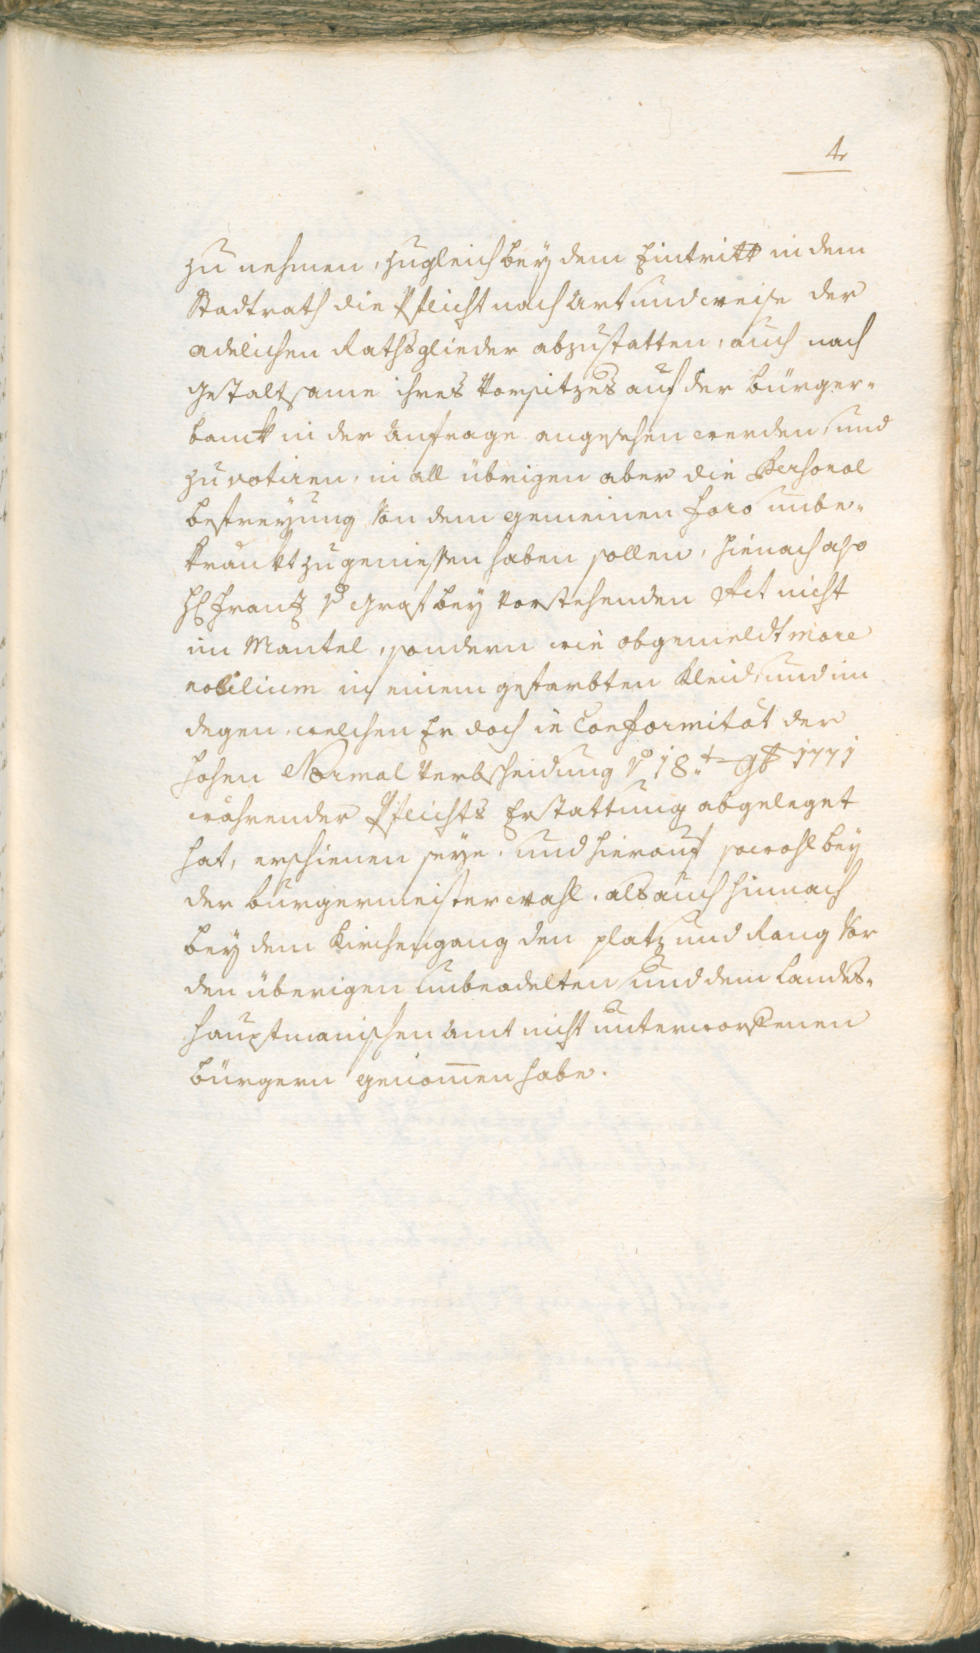 4
zu nehmen, zugleich bey dem Eintritt in dem
Stadtrath die Pflicht nach Art und weise der
adelichen Rathsglieder abzustatten, auch nach
gestaltsame ihres Vorsitzes auf der Bürger-
banck in der Anfrage angesehen werden, und
zu votiren, in all übrigen aber die Personal
befreyung von dem gemeinen foro unbe-
kränkt zu geniessen haben sollen, hienach also
H. Frantz v. Graf bey vorstehenden Act nicht
im Mantel, sondern wie obgemeldt more
nobilium in einem gefarbten Kleid, und im
degen, welchen Er doch in Conformität der
hohen Normal Verbscheidung 18.t 1771
währender Pflichts Erstattung abgeleget
hat, erschienen seye, und hierauf sowohl bey
der burgermeister wahl, als auch hinnach
bey dem Kirchengang den platz und Rang vor
den überigen unbeadelten und dem Landes-
hauptmanischen Amt nicht unterworfenen
bürgern genom̅en habe.